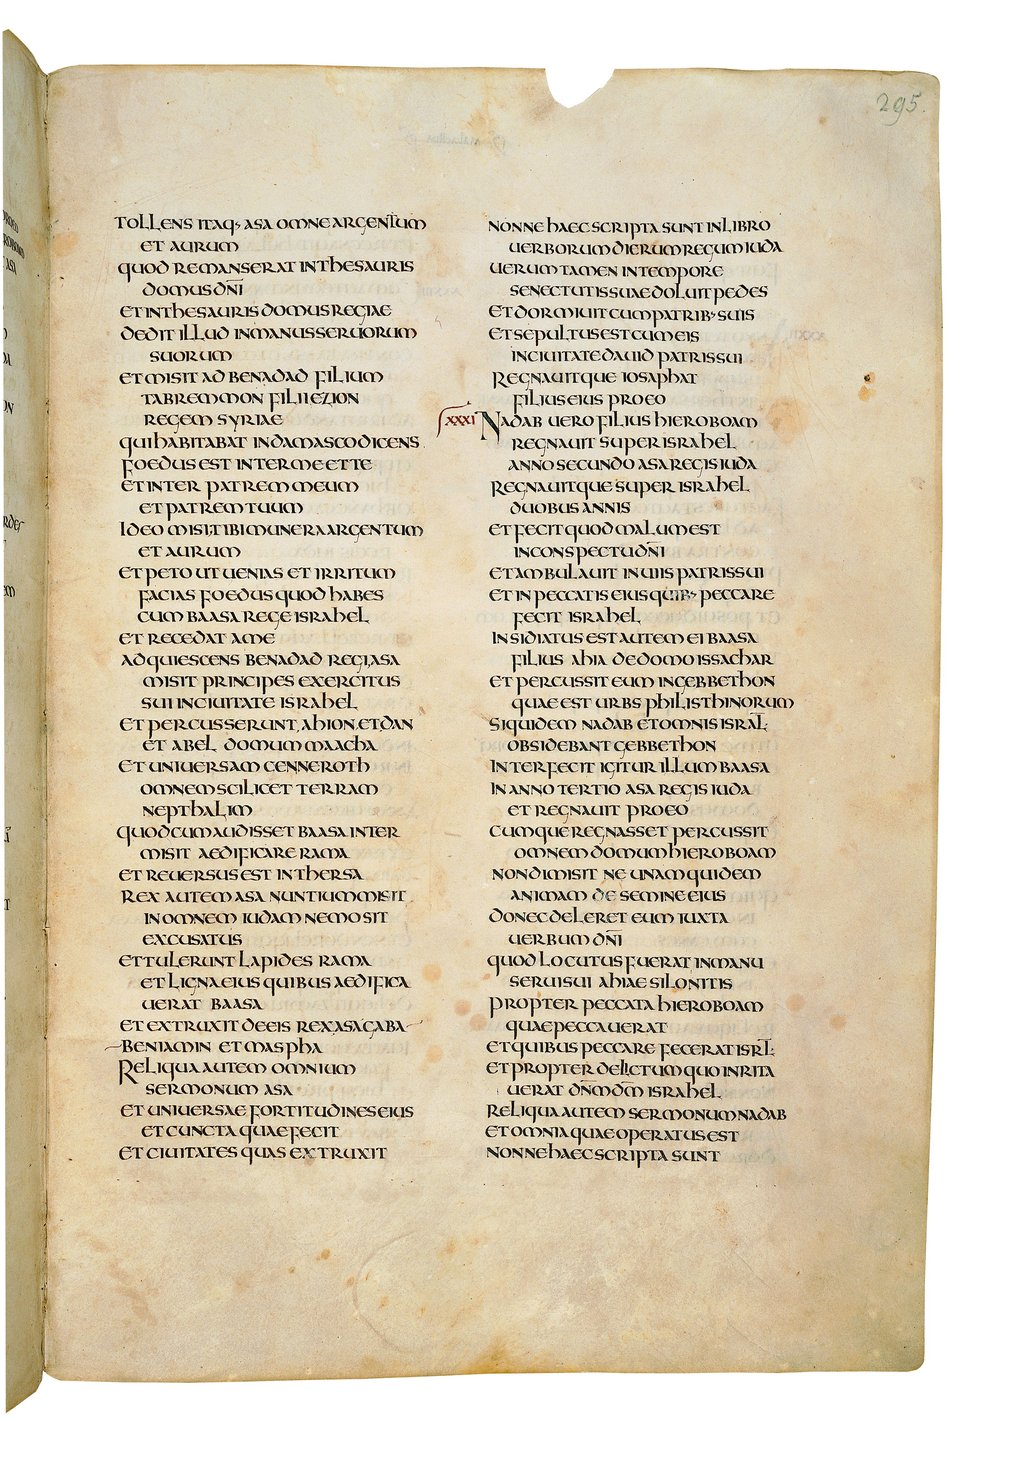 295.
TOLLENS ITAQ· ASA OMNE ARGENTUM
ET AURUM
QUOD REMANSERAT IN THESAURIS
DOMUS DN̄I
ET IN THESAURIS DOMUS REGIAE
DEDIT ILLUD IN MANUS SERUORUM
SUORUM
ET MISIT AD BENADAD FILIUM
TABREMMON FILII EZION
REGEM SYRIAE
QUI HABITABAT IN DAMASCO DICENS
FOEDUS EST INTER ME ET TE
ET INTER PATREM MEUM
ET PATREM TUUM
IDEO MISI TIBI MUNERA ARGENTUM
ET AURUM
ET PETO UT UENIAS ET IRRITUM
FACIAS FOEDUS QUOD HABES
CUM BAASA REGE ISRAHEL
ET RECEDAT A ME
ADQUIESCENS BENADAD REGI ASA
MISIT PRINCIPES EXERCITUS
SUI IN CIUITATE ISRAHEL
ET PERCUSSERUNT AHION ET DAN
ET ABEL DOMUM MAACHA
ET UNIUERSAM CENNEROTH
OMNEM SCILICET TERRAM
NEPTHALIM
QUOD CUM AUDISSET BAASA INTER
MISIT AEDIFICARE RAMA
ET REUERSUS EST IN THERSA
REX AUTEM ASA NUNTIUM MISIT
IN OMNEM IUDAM NEMO SIT
EXCUSATUS
ET TULERUNT LAPIDES RAMA
ET LIGNA EIUS QUIBUS AEDIFICA
UERAT BAASA
ET EXTRUXIT DE EIS REX ASA GABA
BENIAMIN ET MASPHA
RELIQUA AUTEM OMNIUM
SERMONUM ASA
ET UNIUERSAE FORTITUDINES EIUS
ET CUNCTA QUAE FECIT
ET CIUITATES QUAS EXTRUXIT
NONNE HAEC SCRIPTA SUNT IN LIBRO
UERBORUM DIERUM REGUM IUDA
UERUM TAMEN IN TEMPORE
SENECTUTIS SUAE DOLUIT PEDES
ET DORMIUIT CUM PATRIB· SUIS
ET SEPULTUS EST CUM EIS
IN CIUITATE DAUID PATRIS SUI
REGNAUITQUE IOSAPHAT
FILIUS EIUS PRO EO
XXXI NADAB UERO FILIUS HIEROBOAM
REGNAUIT SUPER ISRAHEL
ANNO SECUNDO ASA REGIS IUDA
REGNAUITQUE SUPER ISRAHEL
DUOBUS ANNIS
ET FECIT QUOD MALUM EST
IN CONSPECTU DN̄I
ET AMBULAUIT IN UIIS PATRIS SUI
ET IN PECCATIS EIUS QUIB· PECCARE
FECIT ISRAHEL
INSIDIATUS EST AUTEM EI BAASA
FILIUS AHIA DE DOMO ISSACHAR
ET PERCUSSIT EUM IN GEBBETHON
QUAE EST URBS PHILISTHINORUM
SIQUIDEM NADAB ET OMNIS ISRAL̄
OBSIDEBANT GEBBETHON
INTERFECIT IGITUR ILLUM BAASA
IN ANNO TERTIO ASA REGIS IUDA
ET REGNAUIT PRO EO
CUMQUE REGNASSET PERCUSSIT
OMNEM DOMUM HIEROBOAM
NON DIMISIT NE UNAM QUIDEM
ANIMAM DE SEMINE EIUS
DONEC DELERET EUM IUXTA
UERBUM DN̄I
QUOD LOCUTUS FUERAT IN MANU
SERUI SUI AHIAE SILONITIS
PROPTER PECCATA HIEROBOAM
QUAE PECCAUERAT
ET QUIBUS PECCARE FECERAT ISRL̄
ET PROPTER DELICTUM QUO INRITA
UERAT DN̄M DM̄ ISRAHEL
RELIQUA AUTEM SERMONUM NADAB
ET OMNIA QUAE OPERATUS EST
NONNE HAEC SCRIPTA SUNT